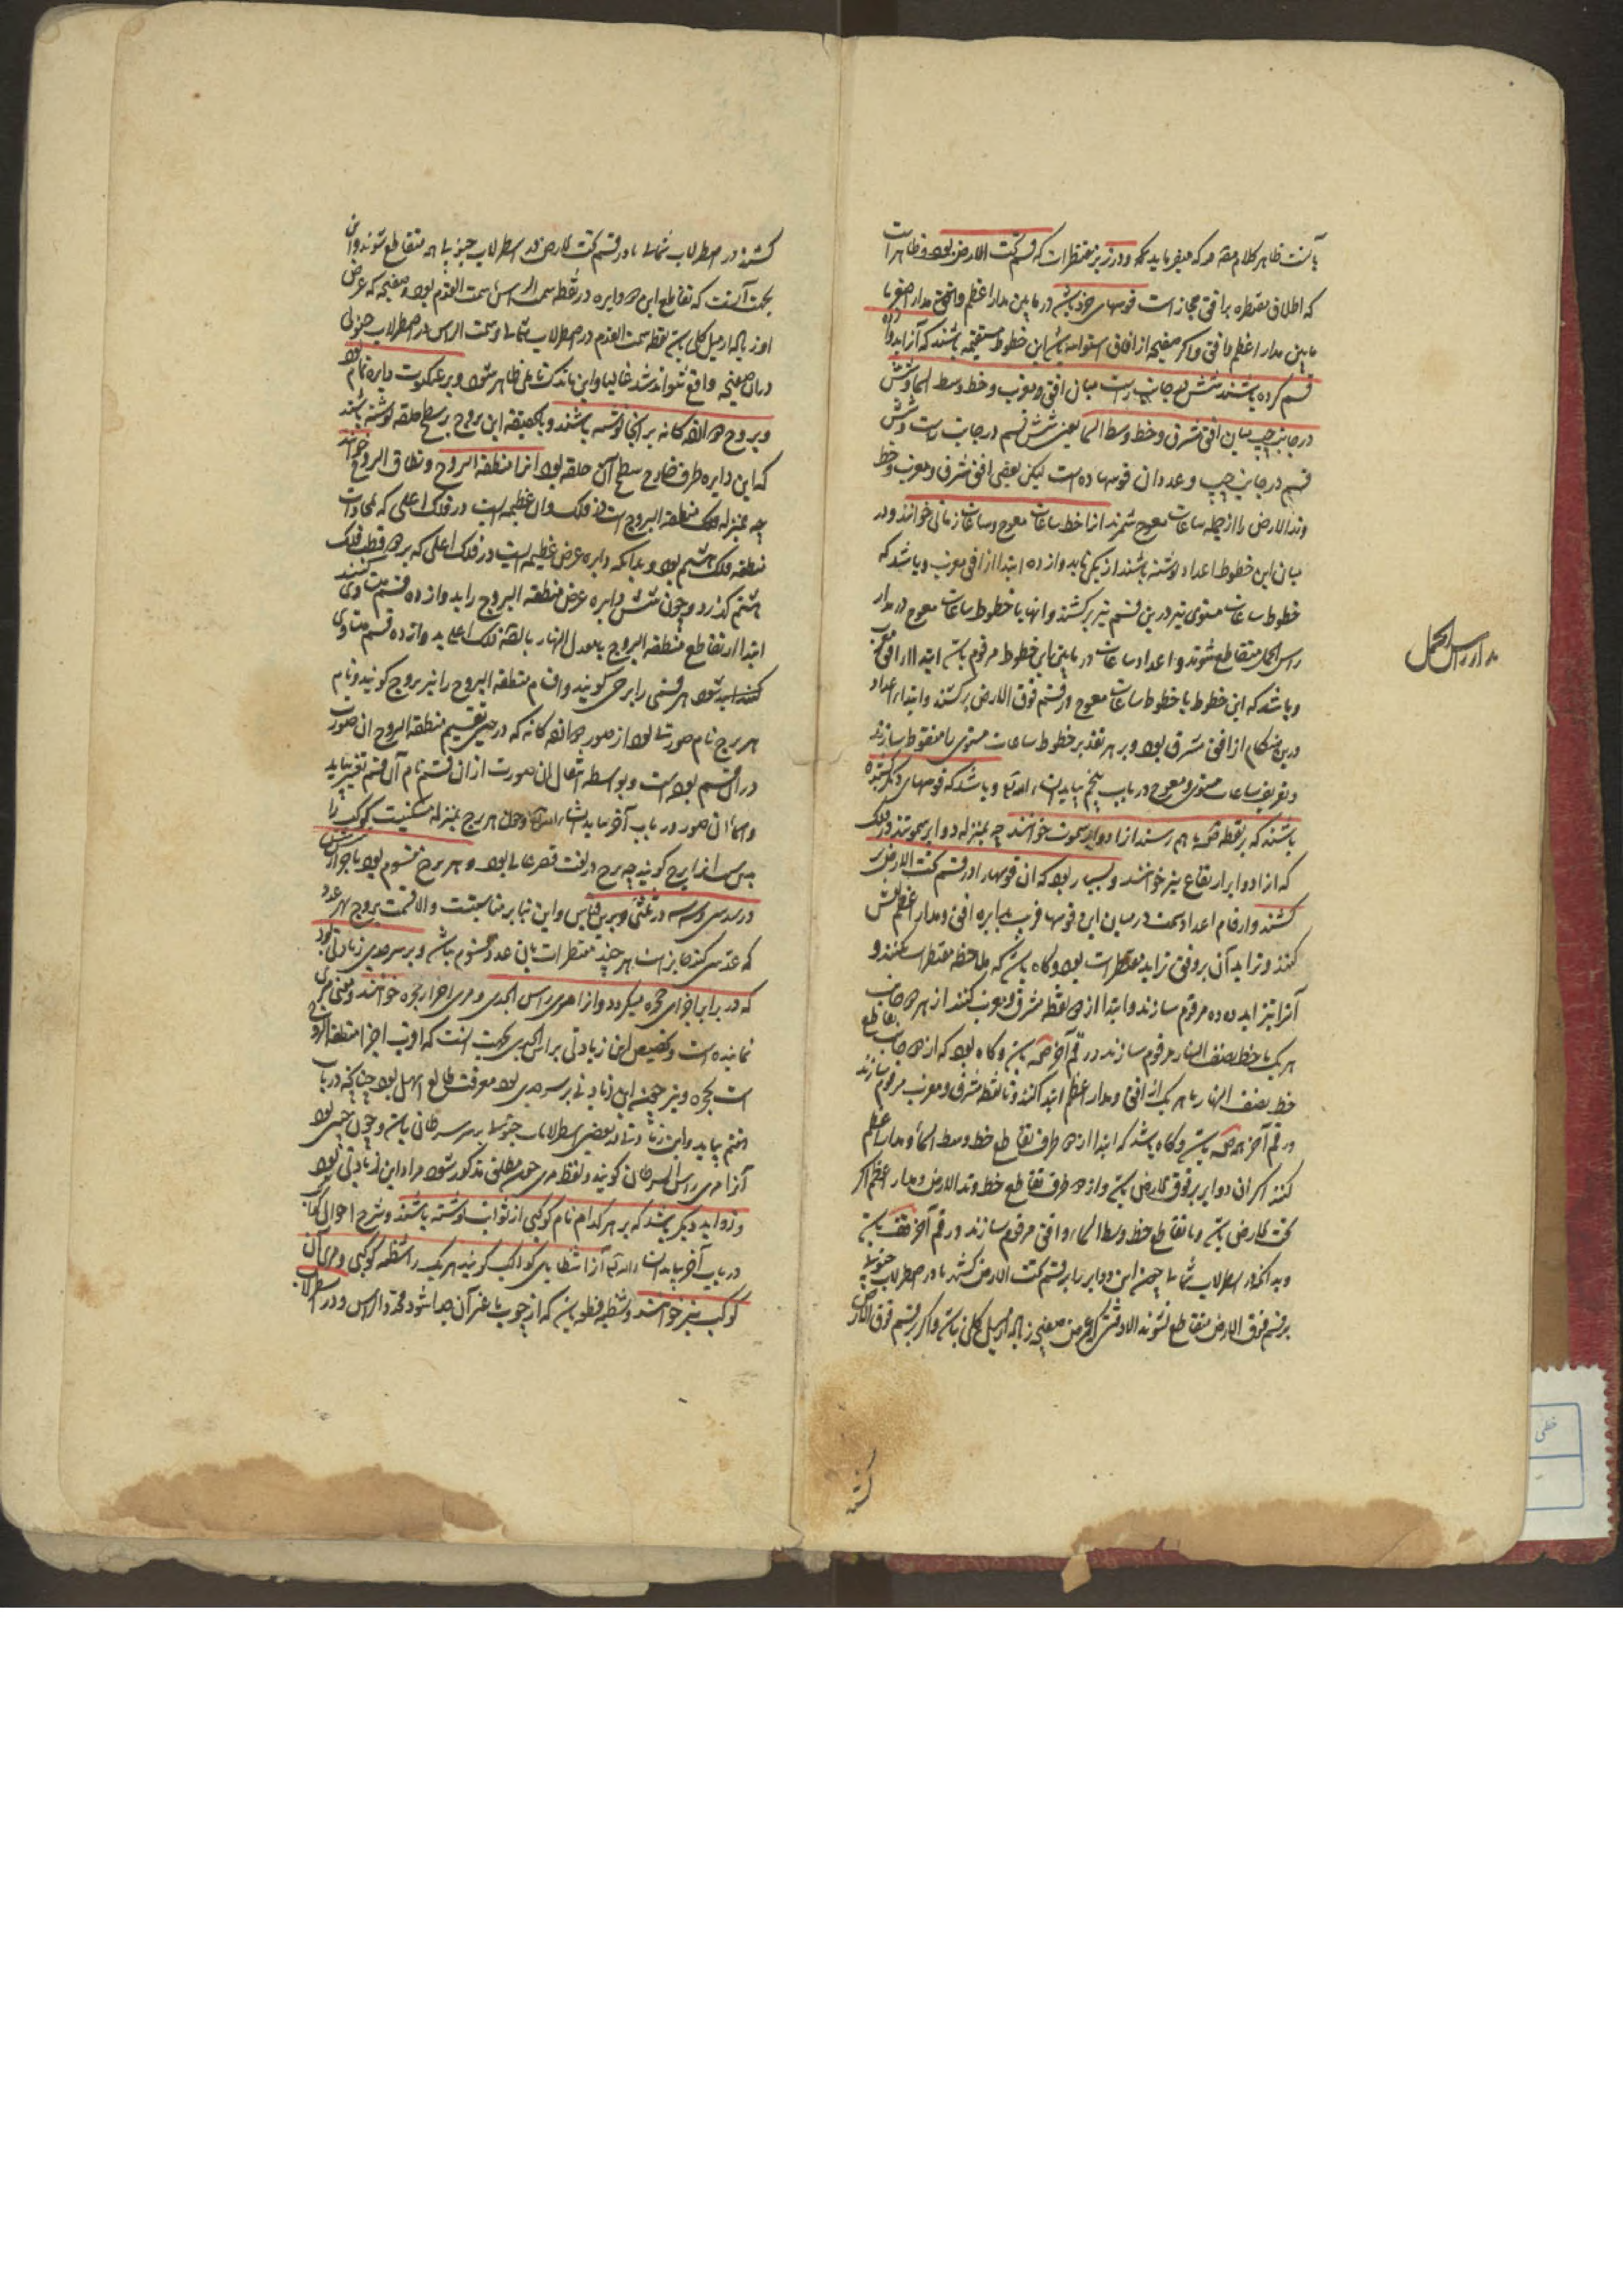 که اطلاق مقنطره بر افق مجاز است قوسهای خرد باشد در مابین مدار اعظم و افق مدار اصغر یا
مابین مدار اعظم و افق و اگر صفیحه از افاق استوا باشد این خطوط مستقیمه باشند که آنرا بدوازده
قسم کرده باشند شش در جانب راست میان افق مغرب و خط وسط السما و شش
در جانب چپ میان افق مشرق و خط وسط السما یعنی شش قسم در جانب راست و شش
قسم در جانب چپ و عدد ان قوسها ده است لیکن بعضی افق مشرق و مغرب و خط
وتد الارض را از جمله ساعات معوج شمرند انرا خط ساعات معوج و ساعات زمانی خوانند و در
میان این خطوط اعداد نوشته باشند از یکی تا بدوازده ابتدا از افق مغرب و باشد که
خطوط ساعات مستوی نیز درین قسم نیز برکشند و انها با خطوط ساعات معوج در مدار
راس الحمل متقاطع شوند و اعداد ساعات در مابین این خطوط مرقوم باشد ابتدا از افق مغرب
و باشد که این خطوط با خطوط ساعات معوج در قسم فوق الارض برکشند و ابتداء اعداد
درین هنگام از افق مشرق بود و بر هر تقدیر خطوط ساعات مستوی را منقوط سازند
و تعریف ساعات مستوی و معوج در باب پنجم بیاید ان شاء الله تع و باشد که قوسهای دیگر کشیده
باشند که بر نقطه به هم رسند انرا دوایر سموت خوانند چه بمنزله دوایر سموتند در فلک
که انرا دوایر ارتفاع نیز خوانند و بسیار بود که ان قوسها را در قسم تحت الارض بر
کشند و ارقام اعداد سمت در میان این قوسها قریب بدایره افق و مدار اعظم نقش
کنند و تزاید آن بر وفق تزاید مقنطرات بود و گاه باشد که ملاحظه مقنطرات نکنند و
آنرا بتزاید ده ده مرقوم سازند و ابتدا از نقطه مشرق و مغرب کنند از هر جانب
هر یک با خط نصف النهار مرقوم سازند در رقم آخر باشد و گاه بود که از جانب تقاطع
خط نصف النهار با هر یک از افق و مدار اعظم ابتدا کنند و تا نقطه مشرق و مغرب مرقوم سازند
و رقم آخر باشد و گاه باشد که ابتدا از طرف تقاطع خط وسط السما و مدار اعظم
کنند اگر ان دوایر بر فوق الارض باشد و از طرف تقاطع خط وتد الارض و مدار اعظم اگر
تحت الارض باشد و تا تقاطع خط وسط السماء و افق مرقوم سازند و رقم آخر باشد
و بدانکه در اسطرلاب شمالی چون این دوایر را بر قسم تحت الارض کشند یا در اسطرلاب جنوبی
بر قسم فوق الارض متقاطع نشوند الا وقتی که عرض صفیحه زیاده از میل کلی باشد و اگر بر قسم فوق الارض
مدار راس الحمل
کشند
کشند در اسطرلاب شمالی یا در قسم تحت الارض در اسطرلاب جنوبی با هم متقاطع شوند و این
بجهت آنست که تقاطع این دوایر در نقطه سمت الراس یا سمت القدم بود و صفیحه که عرض
او زیاده از میل کلی باشد نقطه سمت القدم در اسطرلاب شمالی و سمت الراس در اسطرلاب جنوبی
دران صفیحه واقع نتواند شد غالبا و این باندک تاملی ظاهر شود و بر عنکبوت دایره تمام بود
و بروج دوازده کانه بر انجا نوشته باشند و بحقیقة این بروج بر سطح حلقه نوشته باشند
که این دایره طرف خارج سطح آن حلقه بود انرا منطقة البروج و نطاق البروج خوانند
چه بمنزله منطقة البروج است در فلک و ان عظیمه ایست در فلک اعلی که محاذات
منطقه فلک هشتم بود و بدانکه دایره عرض عظیمه ایست در فلک اعلی که بر دو قطب فلک
هشتم گذرد و چون شش دایره عرض منطقة البروج را بدوازده قسم مساوی کنند
ابتدا از تقاطع منطقة البروج بمعدل النهار فلک اعلی بدوازده قسم متساوی
شود هر قسمی را برجی گویند و اقسام منطقة البروج را نیز بروج گویند و نام
هر برج نام صورتی بود از صور دوازده کانه که در حین تقسیم منطقة البروج ان صورت
دران قسم بوده است و بواسطه انتقال ان صورت از ان قسم نام آن قسم تغییر نیابد
و اسماء ان صور در باب آخر بیاید ان شاء الله و چون هر برج بمنزله کوکب را
پس انرا برج گویند چه برج در لغت قصر عالی بود و هر برج مقسوم بود باجزا شش شش
در سدسی و سه سه در ثلثی و برین قیاس و این بنابر مناسبت و الا قسمت بروج بهر عدد
که عدّ سی کند جایز است هر چند مقنطرات بان عدد مقسوم نباشد و بر سر جدی زیادتی بود
که در برابر اجزای حجره میگردد و انرا مری راس الجدی و مری اجزاء حجره خوانند و معنی مری
نماینده است و تخصیص این زیادتی براس الجدی بجهت انست که اقرب اجزا منطقة البروج
است بحجره و نیز چون این زیادتی بر سر جدی بود معرفت طالع اسهل بود چنانکه در باب
هفتم بیاید و این زیادتی در بعضی اسطرلاب جنوبی بر سر سرطان باشد و چون چنین بود
آنرا مری راس السرطان گویند و لفظ مری چون مطلق مذکور شود مراد این زیادتی بود
و زواید دیگر باشد که بر هر کدام نام کوکبی از ثوابت نوشته باشند و شرح احوال کواکب
در باب آخر بیاید ان شاء الله تع آنرا شظایای کواکب گویند هر یک را شظیه کوکبی و مری آن
کوکب نیز خوانند و شظیه قطعه باشد که از چوب یا غیر آن جدا شود محدد الراس و در اسطرلاب